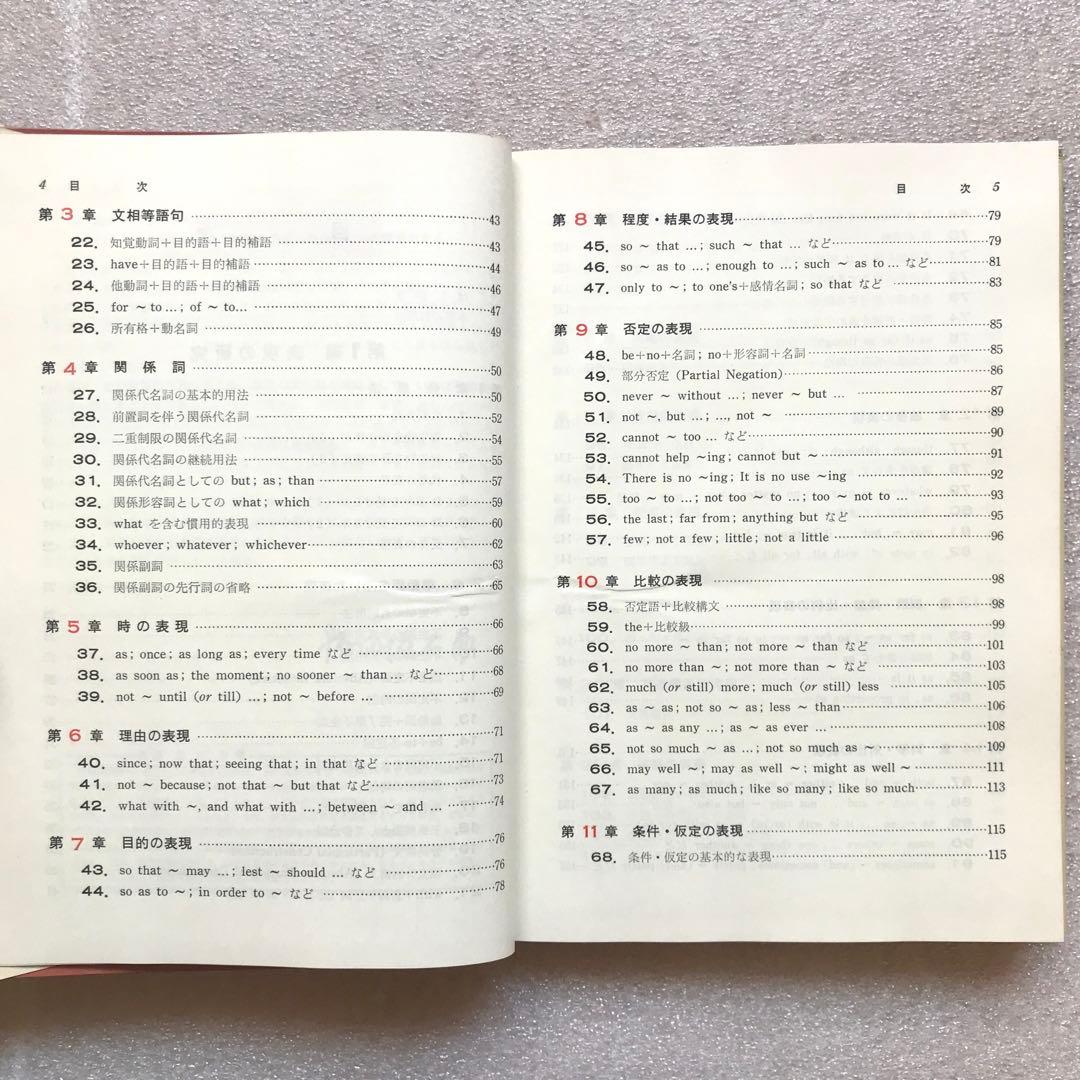 4 目 次
第3章 文相等語句 ……43
22. 知覚動詞+目的語+目的補語 ……43
23. have+目的語+目的補語 ……44
24. 他動詞+目的語+目的補語 ……46
25. for ~ to …; of ~ to… ……47
26. 所有格+動名詞 ……49
第4章 関係詞 ……50
27. 関係代名詞の基本的用法 ……50
28. 前置詞を伴う関係代名詞 ……52
29. 二重制限の関係代名詞 ……54
30. 関係代名詞の継続用法 ……55
31. 関係代名詞としての but; as; than ……57
32. 関係形容詞としての what; which ……59
33. what を含む慣用的表現 ……60
34. whoever; whatever; whichever ……62
35. 関係副詞 ……63
36. 関係副詞の先行詞の省略 ……65
第5章 時の表現 ……66
37. as; once; as long as; every time など ……66
38. as soon as; the moment; no sooner ~ than … など ……68
39. not ~ until (or till) …; not ~ before … ……69
第6章 理由の表現 ……71
40. since; now that; seeing that; in that など ……71
41. not ~ because; not that ~ but that など ……73
42. what with ~, and what with …; between ~ and … ……74
第7章 目的の表現 ……76
43. so that ~ may …; lest ~ should … など ……76
44. so as to ~; in order to ~ など ……78
目 次 5
第8章 程度・結果の表現 ……79
45. so ~ that …; such ~ that … など ……79
46. so ~ as to …; enough to …; such ~ as to … など ……81
47. only to ~; to one's+感情名詞; so that など ……83
第9章 否定の表現 ……85
48. be+no+名詞; no+形容詞+名詞 ……85
49. 部分否定 (Partial Negation) ……86
50. never ~ without …; never ~ but … ……87
51. not ~, but …; …, not ~ ……89
52. cannot ~ too … など ……90
53. cannot help ~ing; cannot but ~ ……91
54. There is no ~ing; It is no use ~ing ……92
55. too ~ to …; not too ~ to …; too ~ not to … ……93
56. the last; far from; anything but など ……95
57. few; not a few; little; not a little ……96
第10章 比較の表現 ……98
58. 否定語+比較構文 ……98
59. the+比較級 ……99
60. no more ~ than; not more ~ than など ……101
61. no more than ~; not more than ~ など ……103
62. much (or still) more; much (or still) less ……105
63. as ~ as; not so ~ as; less ~ than ……106
64. as ~ as any …; as ~ as ever … ……108
65. not so much ~ as …; not so much as ~ ……109
66. may well ~; may as well ~; might as well ~ ……111
67. as many; as much; like so many; like so much ……113
第11章 条件・仮定の表現 ……115
68. 条件・仮定の基本的な表現 ……115